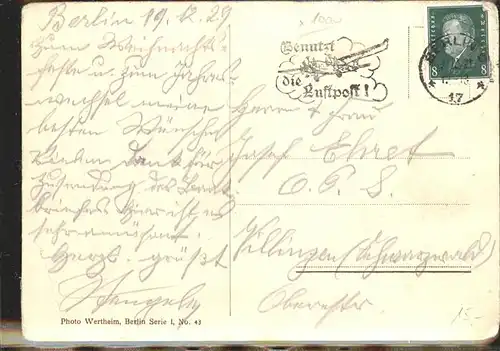 Berlin 19.12.29
Zum Weihnachts-
feste u. zum Jahres-
wechsel meine
besten Wünsche
Vielen Dank für
Zusendung des
sehr amüsant.
Herzl. grüßt
Photo Wertheim, Berlin Serie I, No. 43
1000
Benutzt
die Luftpost!
BERLIN
17
8 8
Herrn & Frau
Josef Ehret
O. P. S.
Villingen (Schwarzwald)
15.-